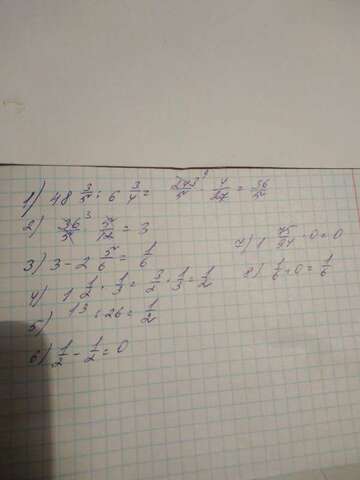 1) 48 3/5 : 6 3/4 = 243/5 · 4/27 = 36/5
2) 36/5 · 5/12 = 3
3) 3 - 2 5/6 = 1/6
4) 1 1/2 · 1/3 = 3/2 · 1/3 = 1/2
5) 13 : 26 = 1/2
6) 1/2 - 1/2 = 0
7) 1 75/94 · 0 = 0
8) 1/6 + 0 = 1/6